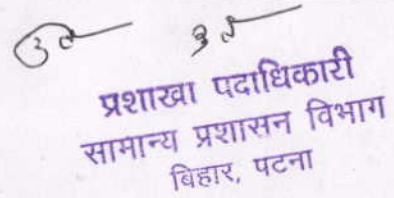 प्रशाखा पदाधिकारी
सामान्य प्रशासन विभाग
बिहार, पटना